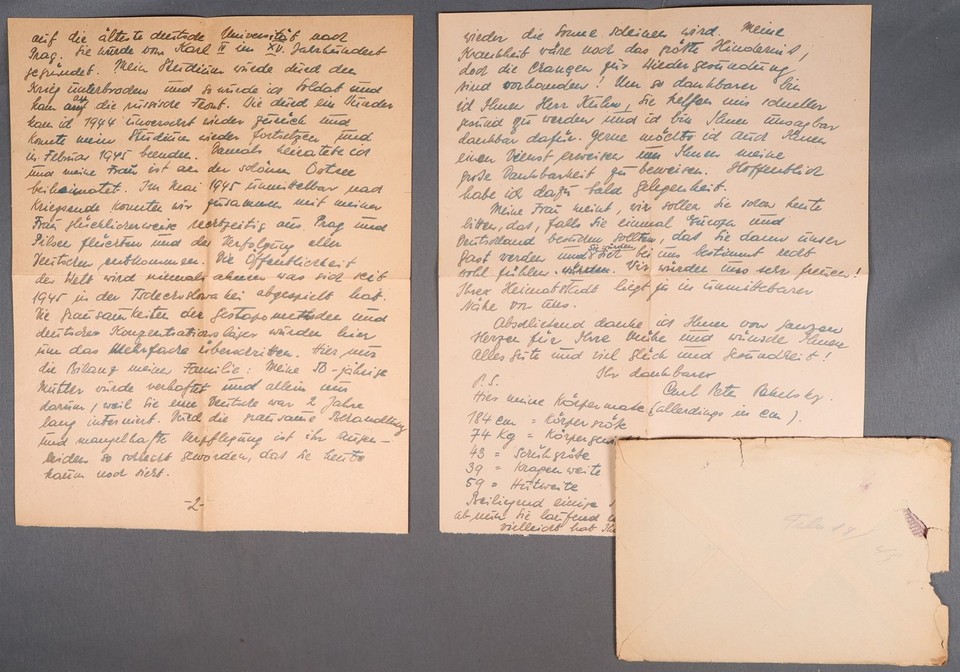 auf die älteste deutsche Universität nach
Prag. Sie wurde von Karl IV im XV. Jahrhundert
gegründet. Mein Studium wurde durch den
Krieg unterbrochen und so wurde ich Soldat und
kam an die russische Front. Wie durch ein Wunder
kam ich 1944 unversehrt wieder zurück und
konnte mein Studium wieder fortsetzen und
im Februar 1945 beenden. Damals heiratete ich
und meine Frau ist an der schönen Ostsee
beiheimatet. Im Mai 1945 unmittelbar nach
Kriegsende konnten wir zusammen mit meiner
Frau glücklicherweise rechtzeitig aus Prag und
Pilsen flüchten und der Verfolgung aller
Deutschen entkommen. Die Öffentlichkeit
der Welt wird niemals ahnen was sich seit
1945 in der Tschechoslowakei abgespielt hat.
Die Grausamkeiten der Gestapomethoden und
deutschen Konzentrationslager wurden hier
um das Mehrfache überschritten. Hier nur
die Bilanz meiner Familie: Meine 50-jährige
Mutter wurde verhaftet und allein nur
darum, weil sie eine Deutsche war 2 Jahre
lang interniert. Durch die grausame Behandlung
und mangelhafte Verpflegung ist ihr Augen-
leiden so schlecht geworden, das sie heute
kaum noch sieht.
-2-
wieder die Sonne scheinen wird. Meine
Krankheit wäre noch das größte Hindernis,
doch die Chancen für Wiedergesundung
sind vorhanden! Um so dankbarer bin
ich Ihnen Herr Kuhn, Sie helfen mir schneller
gesund zu werden und ich bin Ihnen unsagbar
dankbar dafür. Gerne möchte ich auch Ihnen
einen Dienst erweisen um Ihnen meine
große Dankbarkeit zu beweisen. Hoffentlich
habe ich dazu bald Gelegenheit.
Meine Frau meint, wir sollen Sie schon heute
bitten, das, falls Sie einmal Europa und
Deutschland besuchen sollten, das Sie dann unser
Gast werden und Sie würden sich bei uns bestimmt recht
wohl fühlen. Wir würden uns sehr freuen!
Ihre Heimatstadt liegt ja in unmittelbarer
Nähe von uns.
Abschliessend danke ich Ihnen vom ganzen
Herzen für Ihre Mühe und wünsche Ihnen
Alles Gute und viel Glück und Gesundheit!
Ihr dankbarer
Carl Peter
P.S.
Hier meine Körpermaße (allerdings in cm).
184 cm = Körpergröße
74 Kg =
43 = Schuhgröße
39 = Kragenweite
59 = Hutweite
Beiliegend einige
Sie laufend
vielleicht hat